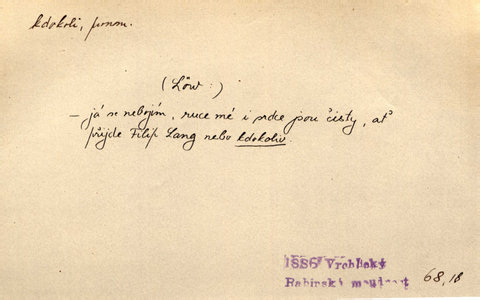 kdokoli, pronom.
(Löw:)
– já se nebojím, ruce mé i srdce jsou čisty, ať
přijde Filip Lang nebo kdokoliv.
1886 Vrchlický
Rabínská moudrost
68,18